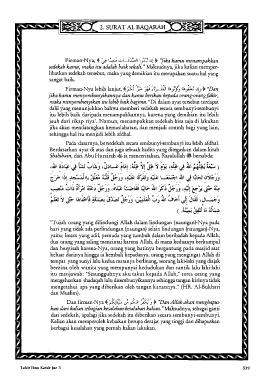 2. SURAT AL BAQARAH
Firman-Nya, ﴾ إِن تُبْدُوا الصَّدَقَاتِ فَنِعِمَّا هِيَ ﴿ "Jika kamu menampakkan
sedekah kamu, maka itu adalah baik sekali." Maksudnya, jika kalian memper-
lihatkan sedekah tersebut, maka yang demikian itu merupakan suatu hal yang
sangat baik.
Firman-Nya lebih lanjut, ﴾ وَإِن تُخْفُوهَا وَتُؤْتُوهَا الْفُقَرَاءَ فَهُوَ خَيْرٌ لَّكُمْ ﴿ "Dan
jika kamu menyembunyikannya dan kamu berikan kepada orang-orang fakir,
maka menyembunyikan itu lebih baik bagimu." Di dalam ayat tersebut terdapat
dalil yang menunjukkan bahwa memberi sedekah secara sembunyi-sembunyi
itu lebih baik daripada menampakkannya, karena yang demikian itu lebih
jauh dari sikap riya'. Namun, menampakkan sedekah bisa saja di lakukan
jika akan mendatangkan kemaslahatan, dan menjadi contoh bagi yang lain,
sehingga hal itu menjadi lebih baik.
Pada dasarnya, bersedekah secara sembunyi-sembunyi itu lebih afdhal.
Berdasarkan ayat di atas dan juga sebuah hadits yang ditegaskan dalam kitab
Shahihain, dari Abu Hurairah ia menceritakan, Rasulullah ﷺ bersabda:
"Tujuh orang yang dilindungi Allah dalam lindungan (naungan)-Nya pada
hari yang tidak ada perlindungan (naungan) selain lindungan (naungan)-Nya,
yaitu; Imam yang adil, pemuda yang tumbuh dalam beribadah kepada Allah,
dua orang yang saling mencintai karena Allah, di mana keduanya berkumpul
dan berpisah karena-Nya, orang yang hatinya bergantung pada masjid saat
keluar darinya hingga ia kembali kepadanya, orang yang mengingat Allah di
tempat yang sunyi lalu kedua matanya berlinang, seorang laki-laki yang diajak
berzina oleh wanita yang mempunyai kedudukan dan cantik lalu laki-laki
itu menjawab: 'Sesungguhnya aku takut kepada Allah,' serta orang yang
mengeluarkan shadaqah lalu disembunyikannya sehingga tangan kirinya tidak
mengetahui apa yang diberikan oleh tangan kanannya." (HR. Al-Bukhari
dan Muslim).
Dan firman-Nya ﴾ وَيُكَفِّرُ عَنكُم مِّن سَيِّئَاتِكُمْ ﴿ "Dan Allah akan menghapus-
kan dari kalian sebagian kesalahan-kesalahan kalian." Maksudnya, sebagai ganti
dari sedekah, apalagi jika sedekah itu diberikan secara sembunyi-sembunyi.
Kalian akan memperoleh kebaikan berupa derajat yang tinggi dan dihapuskan
berbagai kesalahan yang pernah kalian lakukan.
Tafsir Ibnu Katsir Juz 3